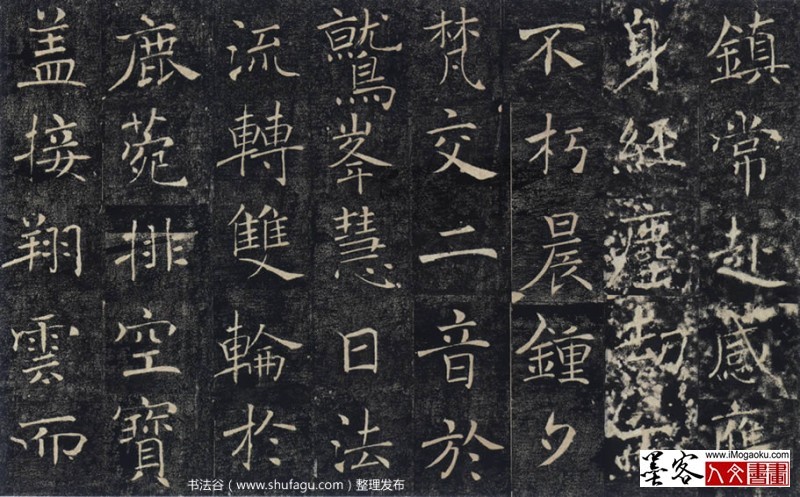 鎮常赴感應
身經塵劫而
不朽晨鍾夕
梵交二音於
鷲峯慧日法
流轉雙輪於
鹿菀排空寶
盖接翔雲而
书法谷（www.shufagu.com）整理发布
墨客 www.iMogaoku.com
人文書畫